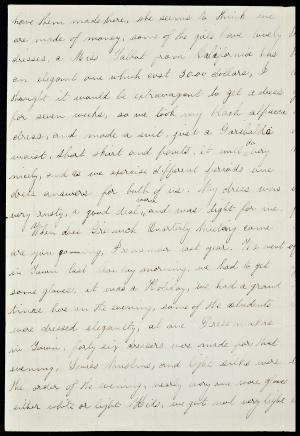 have them made here, she seems to think we
are made of money, some of the gals have lovely
dresses, a Miss Talbat from California has
an elegant one which cost 30.00 dollars, I
thought it would be extravagant to get a dress
for seven weeks, so we took my black alpacca
dress, and made a suit, just a Garibaldi
waist, short skirt and pants, it will do very
nicely, and as we exercise different periods one
dress answers for both of us. My dress was
very rusty, a good deal worn, and was tight for me.
When does Quarterly Meeting come
are you going, I remember last year. I went
in Town last morning, we had to get
some gloves, it was a Holiday, we had a grand
time here in the evening, some of the students
were dressed elegantly, at one Dress makers
in Town, forty six dresses were made for that
evening, Swiss Muslins, and light silks were
the order of the evening, nearly every one wore gloves
either white or light Kids, we got not very light